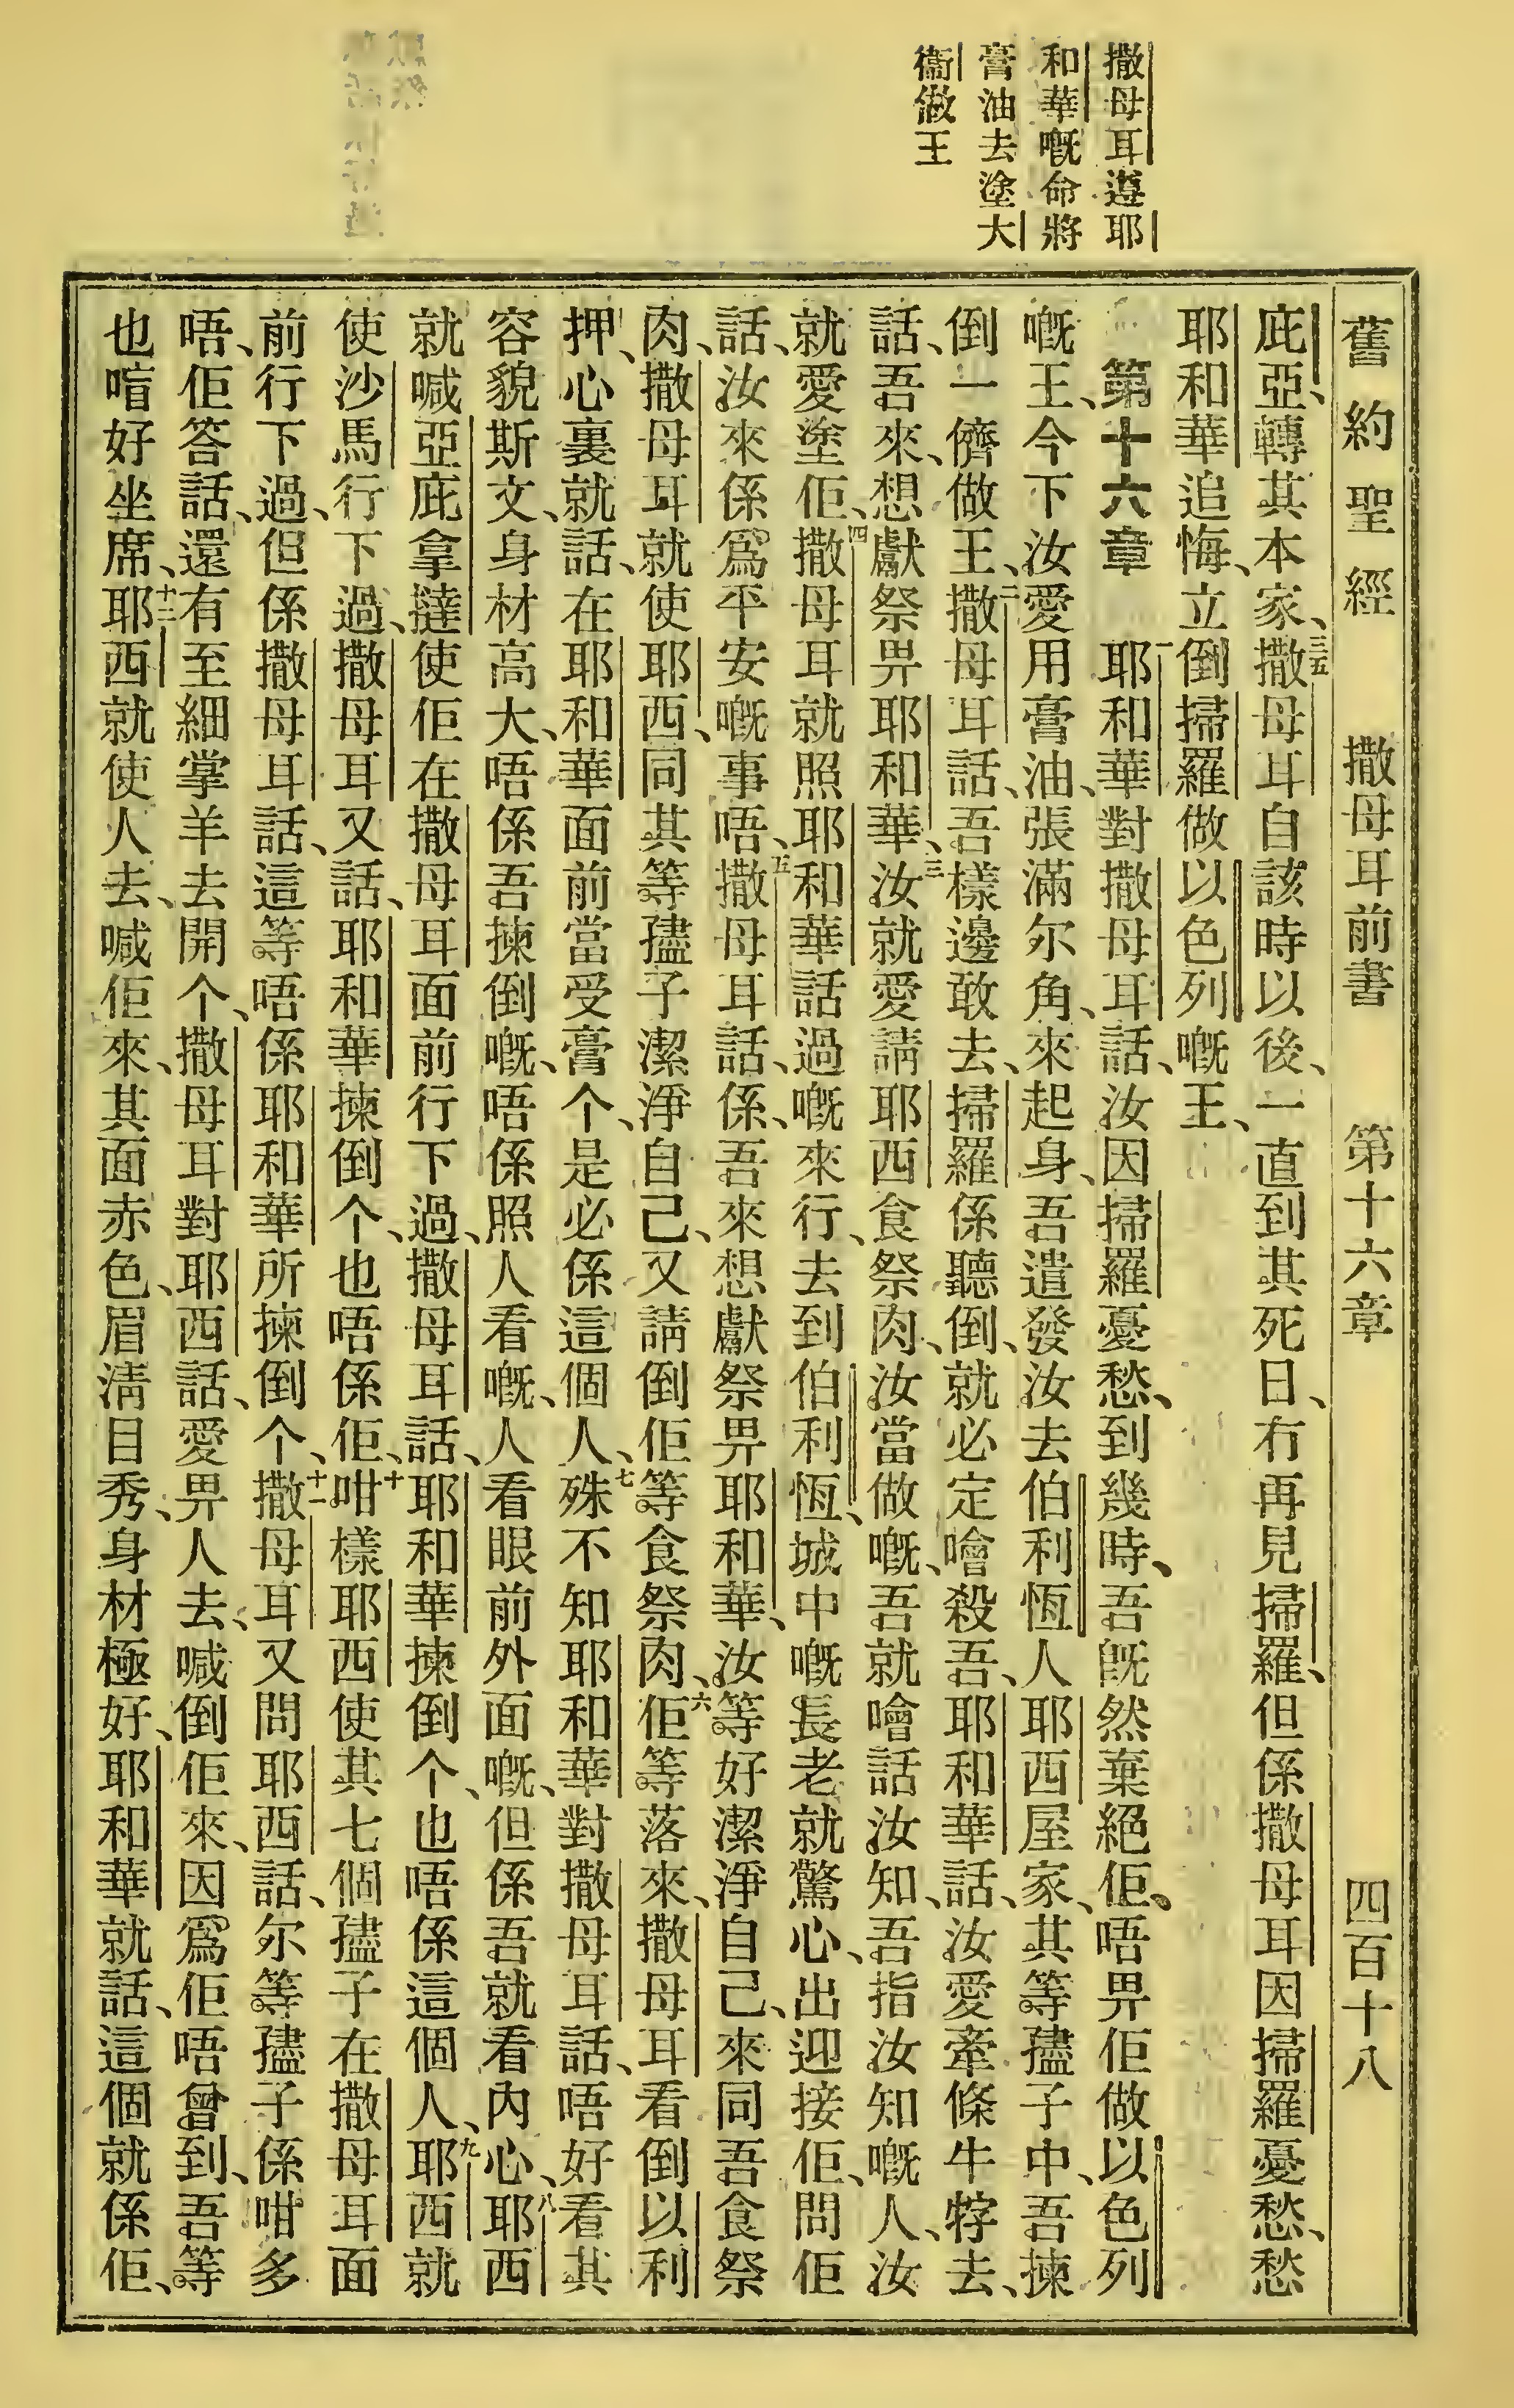 撒母耳遵耶
和華嘅命將
膏油去塗大
衞做王
舊約聖經 撒母耳前書 第十六章 四百十八
庇亞、轉其本家、三五撒母耳自該時以後、一直到其死日、冇再見掃羅、但係撒母耳因掃羅憂愁、愁
耶和華追悔、立倒掃羅做以色列嘅王、
第十六章 一耶和華對撒母耳話、汝因掃羅憂愁、到幾時、吾既然棄絕佢、唔畀佢做以色列
嘅王、今下汝愛用膏油、張滿尔角、來起身、吾遣發汝去伯利恆人耶西屋家、其等孻子中、吾揀
倒一儕做王、二撒母耳話、吾樣邊敢去、掃羅係聽倒、就必定噲殺吾、耶和華話、汝愛牽條牛牸去、
話、吾來、想獻祭畀耶和華、三汝就愛請耶西食祭肉、汝當做嘅、吾就噲話汝知、吾指汝知嘅人、汝
就愛塗佢、四撒母耳就照耶和華話過嘅來行、去到伯利恆、城中嘅長老就驚心、出迎接佢、問佢
話、汝來係爲平安嘅事唔、五撒母耳話、係、吾來想獻祭畀耶和華、汝等好潔淨自己、來同吾食祭
肉、撒母耳就使耶西、同其等孻子潔淨自己、又請倒佢等食祭肉、六佢等落來、撒母耳看倒以利
押、心裏就話、在耶和華面前當受膏个、是必係這個人、七殊不知耶和華對撒母耳話、唔好看其
容貌斯文、身材高大、唔係吾揀倒嘅、唔係照人看嘅、人看眼前外面嘅、但係吾就看內心、八耶西
就喊亞庇拿撻使佢在撒母耳面前行下過、撒母耳話、耶和華揀倒个、也唔係這個人、九耶西就
使沙馬行下過、撒母耳又話、耶和華揀倒个、也唔係佢、十咁樣耶西使其七個孻子在撒母耳面
前行下過、但係撒母耳話、這等唔係耶和華所揀倒个、十一撒母耳又問耶西話、尔等孻子係咁多
唔、佢答話、還有至細掌羊去開个、撒母耳對耶西話、愛畀人去、喊倒佢來、因爲佢唔曾到、吾等
也喧好坐席、十二耶西就使人去、喊佢來、其面赤色、眉淸目秀、身材極好、耶和華就話、這個就係佢、